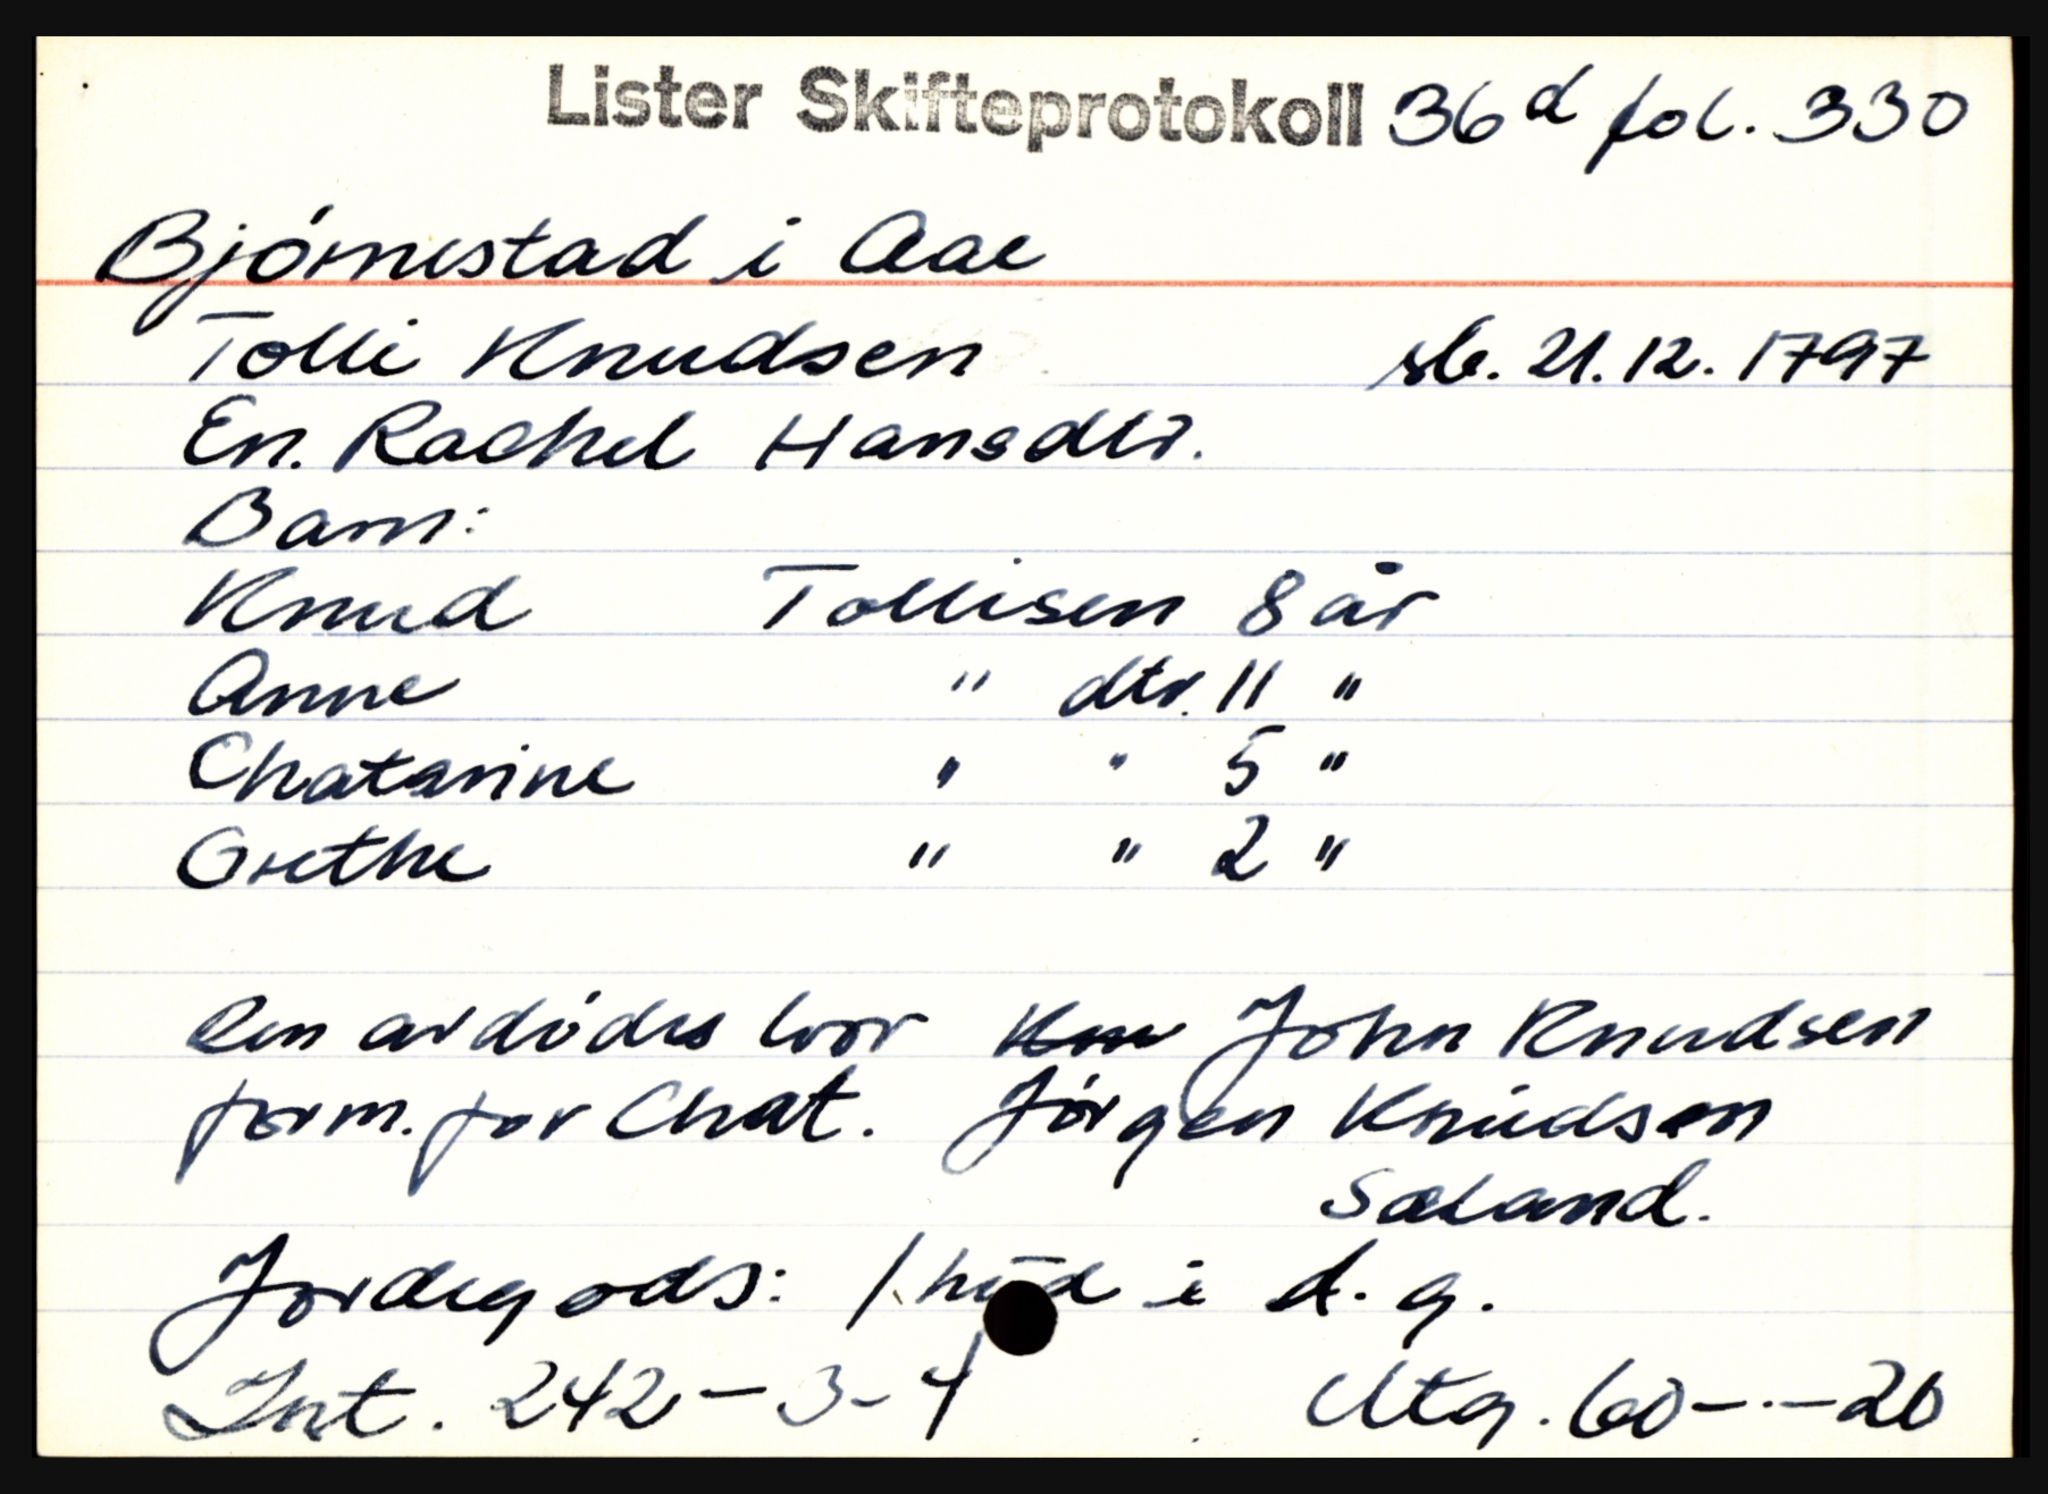 Lister Skifteprotokoll 36d fol. 330
Bjørnestad i Aae
Tolli Knudsen sb. 21.12.1797
En. Rachel Hansdtr.
Barn:
Knud Tollisen 8 år
Anne " dtr. 11 "
Chatarine " " 5 "
Grethe " " 2 "
Den avdødes bror John Knudsen
form. for Chat. Jørgen Knudsen
Sæland.
Jordegods: 1 hud i d. g.
Int. 242 - 3 - 4 Utg. 60 - · - 20